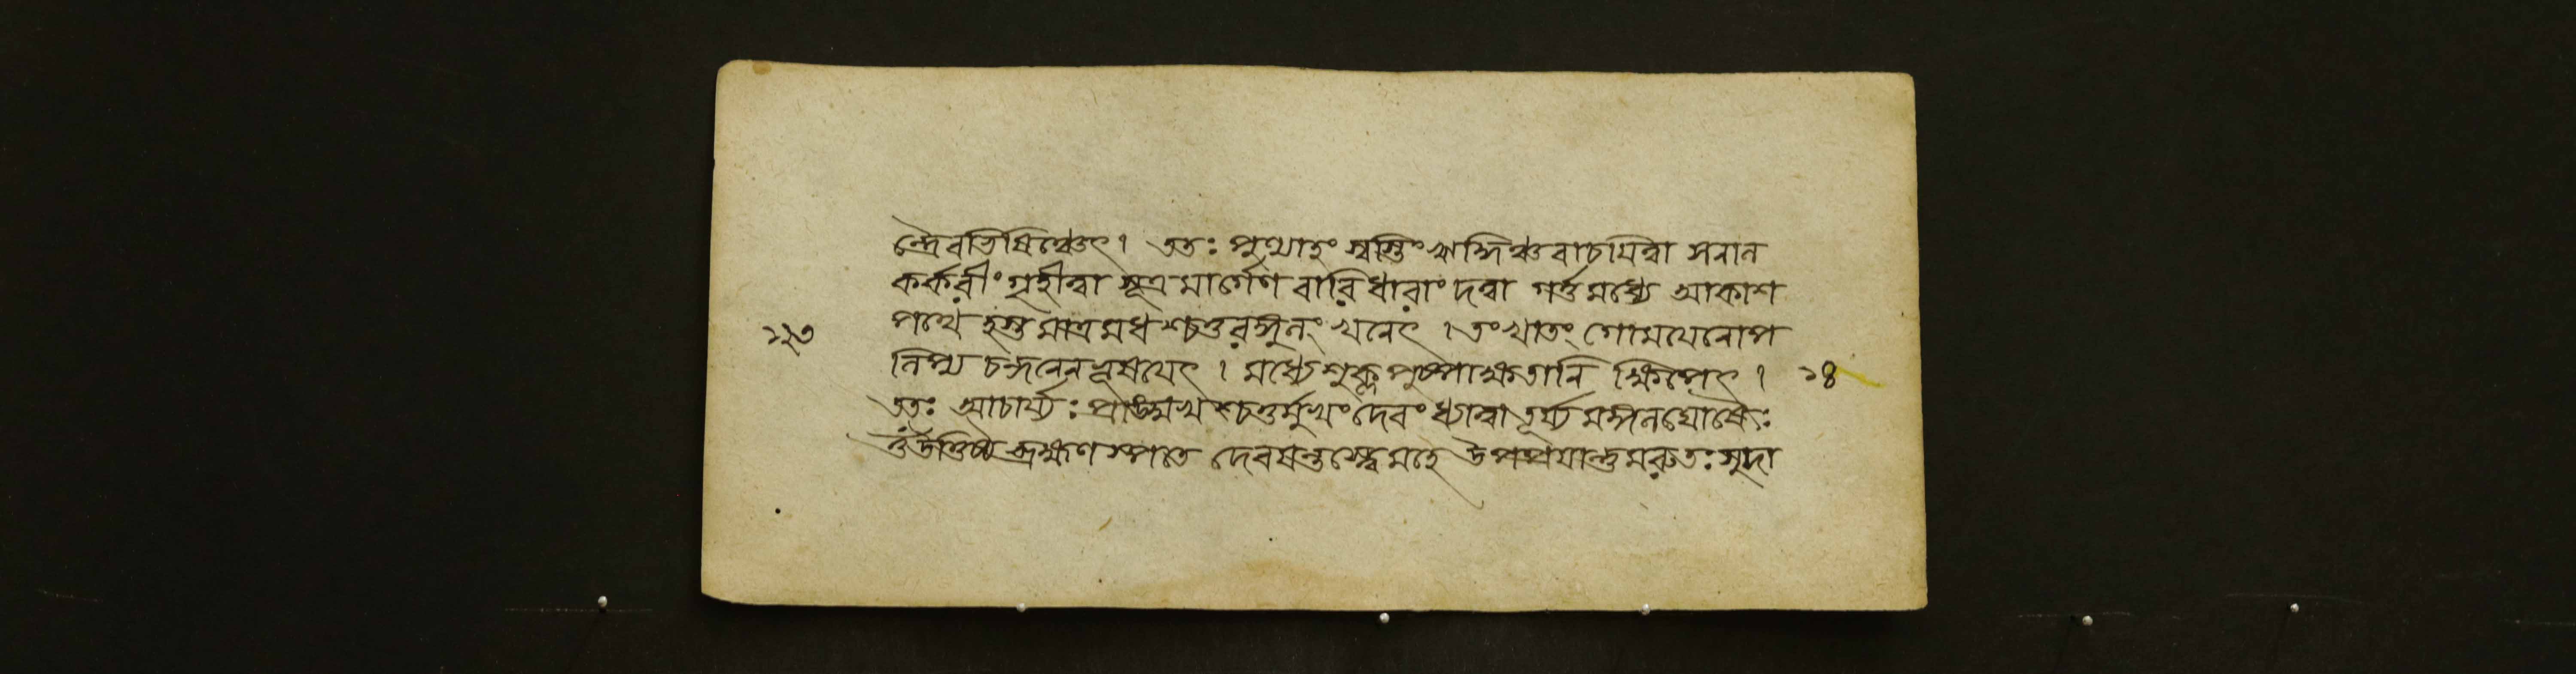 ন্দ্রৈরভিষিঞ্চেৎ। ততঃ পুণ্যাহং স্বস্তিং ঋদ্ধিঞ্চ বাচয়িত্বা সনাল
কর্করীং গৃহীত্বা সূত্রমার্গেণ বারিধারাং দত্বা গর্ত্তমধ্যে আকাশ
পদে হস্তমাত্রমধশ্চতুরঙ্গুলং খনেৎ। তং খাতং গোময়েনোপ
১২৩
লিপ্য চন্দনেন ভূষয়েৎ। মধ্যে শুক্লপুষ্পাক্ষতানি ক্ষিপেৎ।
১৪
ততঃ আচার্য্যঃ প্রাঙ্মুখশ্চতুর্মুখং দেবং ধ্যাত্বা তূর্য্যমঙ্গলঘোষৈঃ
ওঁ উত্তিষ্ঠ ব্রহ্মণস্পতে দেবয়ন্তস্ত্বেমহে উপপ্রয়ান্তু মরুতঃ সুদা